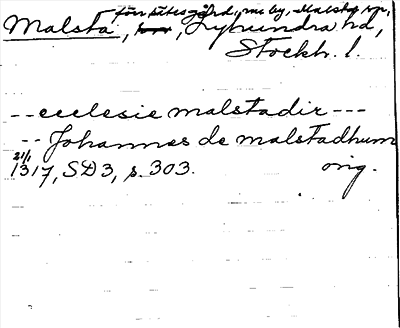 förr sätesgård, nu by, Malsta sn,
Malsta, Lyhundra hd,
Stockh. l.
-- ecclesie malstadir ---
-- Johannes de malstadhum
21/1
1317, SD3, s. 303. orig.